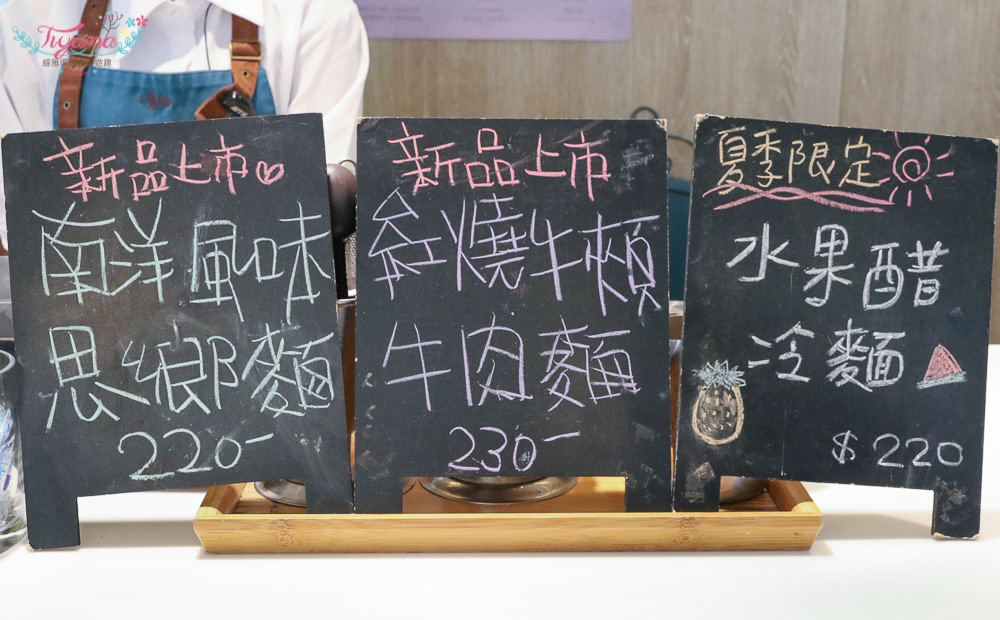 Tiyama
緹雅瑪 遊趣
新品上市♡
南洋風味
思鄉麵
220-
新品上市
釜燒牛頰
牛肉麵
230-
夏季限定
水果醋
冷麵
$220